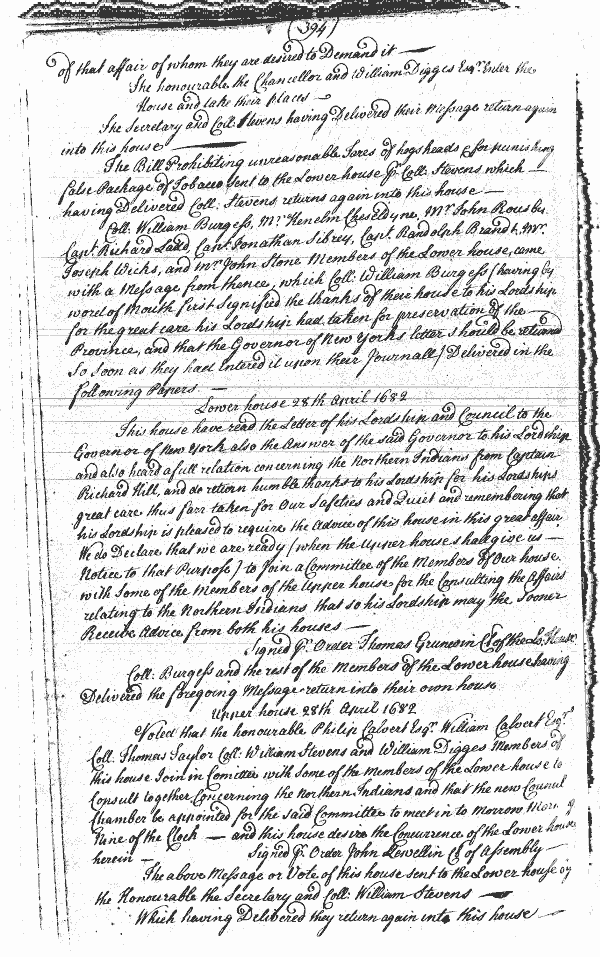 (394)
of that affair of whom they are desired to Demand it —
The honourable the Chancellor and William Digges Esqr. Enter the
House and take their places —
The Secretary and Coll: Stevens having Delivered their Message return again
into this house
The Bill Prohibiting unreasonable Tares of hogsheads & for punishing
false Package of Tobacco sent to the Lower house pr. Coll: Stevens which —
having Delivered Coll: Stevens returns again into this house —
Coll: William Burgess, Mr. Kenelm Cheseldyne, Mr. John Rousby
Capt. Richard Ladd, Capt. Jonathan Sibrey, Capt. Randolph Brandt, Mr.
Joseph Wicks, and Mr. John Stone Members of the Lower house, came
with a Message from thence, which Coll: William Burgess (having by
word of Mouth first Signified the thanks of their house to his Lordship
for the great care his Lordship had, taken for preservation of the
Province, and that the Governor of New Yorks letter should be returnd
so soon as they had Entered it upon their Journall) Delivered in the
following Papers. —
Lower house 28th April 1682
This house have read the Letter of his Lordship and Council to the
Governor of New York also the Answer of the said Governor to his Lordship
and also heard a full relation concerning the Northern Indians from Captain
Richard Hill, and do return humble thanks to his Lordship for his Lordships
great care thus farr taken for Our Safeties and Quiet and remembering that
his Lordship is pleased to require the Advice of this house in this great affair
We do Declare that we are ready (when the Upper house shall give us —
Notice to that Purpose) to Join a Committee of the Members of Our house
with Some of the Members of the Upper house for the Consulting the Affairs
relating to the Northern Indians that so his Lordship may the Sooner
Receive Advice from both his houses —
Signed pr. Order Thomas Grunwin Cl. of the Lo. House
Coll: Burgess and the rest of the Members of the Lower house having
Delivered the foregoing Message return into their own house
Upper house 28th April 1682
Voted that the honourable Philip Calvert Esqr. William Calvert Esqr.
Coll: Thomas Taylor Coll: William Stevens and William Digges Members of
this house Join in Comittee with Some of the Members of the Lower house to
Consult together Concerning the Northern Indians and that the new Councul
Chamber be appointed for the said Committee to meet in to Morrow Morn. of
Nine of the Clock — and this house desire the Concurrence of the Lower house
herein —
Signed pr. Order John Llewellin Cl of Assembly —
The above Message or Vote of this house sent to the Lower house by
the Honourable the Secretary and Coll: William Stevens —
Which having Delivered they return again into this house —